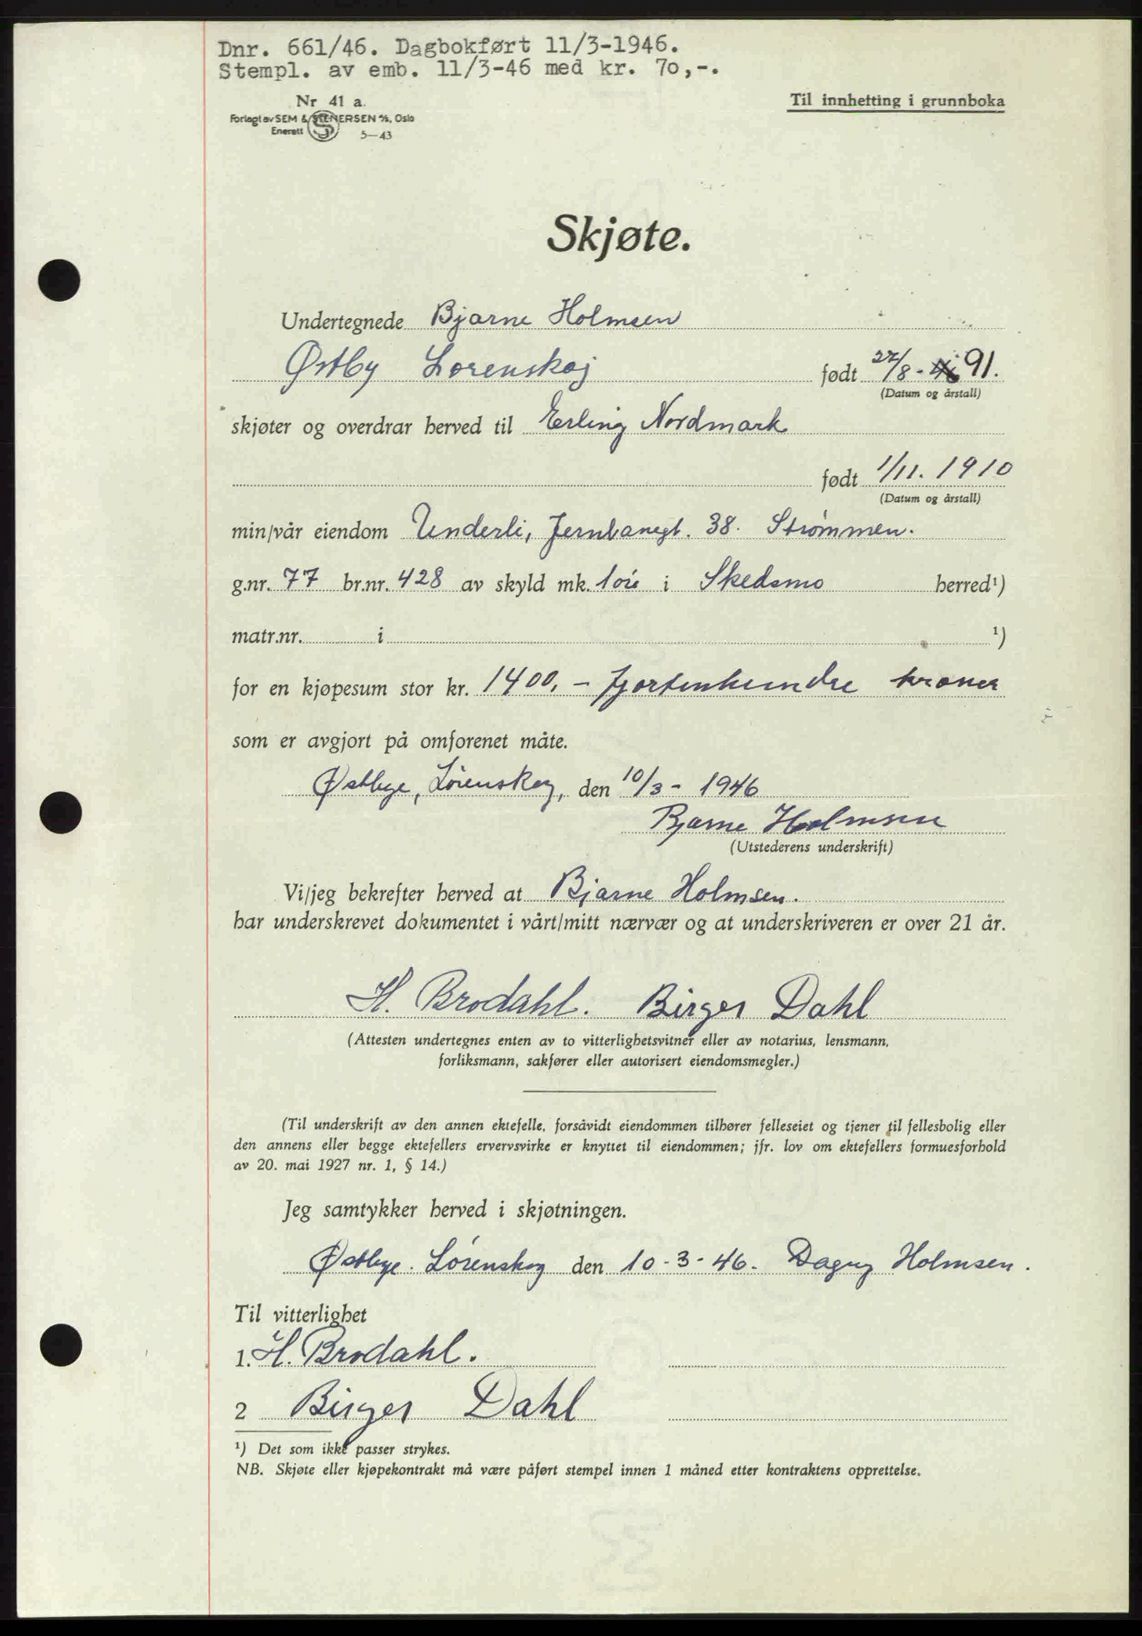 Dnr. 661/46. Dagbokført 11/3-1946.
Stempl. av emb. 11/3-46 med kr. 7o,-.
Nr 41 a.
Forlagt av SEM & STENERSEN A/S, Oslo
Enerett S 5-43
Til innhefting i grunnboka
Skjøte.
Undertegnede Bjarne Holmsen
Østby Lørenskog født 27/8 - 91.
(Datum og årstall)
skjøter og overdrar herved til Erling Nordmark
født 1/11. 1910
(Datum og årstall)
min/vår eiendom Underli, Jernbanegt. 38. Strømmen.
g.nr. 77 br.nr. 428 av skyld mk. 1 øre i Skedsmo herred¹)
matr.nr. i ¹)
for en kjøpesum stor kr. 1400,- fjortenhundre kroner
som er avgjort på omforenet måte.
Østbye, Lørenskog, den 10/3 - 1946
Bjarne Holmsen
(Utstederens underskrift)
Vi/jeg bekrefter herved at Bjarne Holmsen.
har underskrevet dokumentet i vårt/mitt nærvær og at underskriveren er over 21 år.
H. Brodahl. Birger Dahl
(Attesten undertegnes enten av to vitterlighetsvitner eller av notarius, lensmann,
forliksmann, sakfører eller autorisert eiendomsmegler.)
(Til underskrift av den annen ektefelle, forsåvidt eiendommen tilhører felleseiet og tjener til fellesbolig eller
den annens eller begge ektefellers ervervsvirke er knyttet til eiendommen; jfr. lov om ektefellers formuesforhold
av 20. mai 1927 nr. 1, § 14.)
Jeg samtykker herved i skjøtningen.
Østbye. Lørenskog den 10-3-46. Dagny Holmsen.
Til vitterlighet
1. H. Brodahl.
2 Birger Dahl
¹) Det som ikke passer strykes.
NB. Skjøte eller kjøpekontrakt må være påført stempel innen 1 måned etter kontraktens opprettelse.